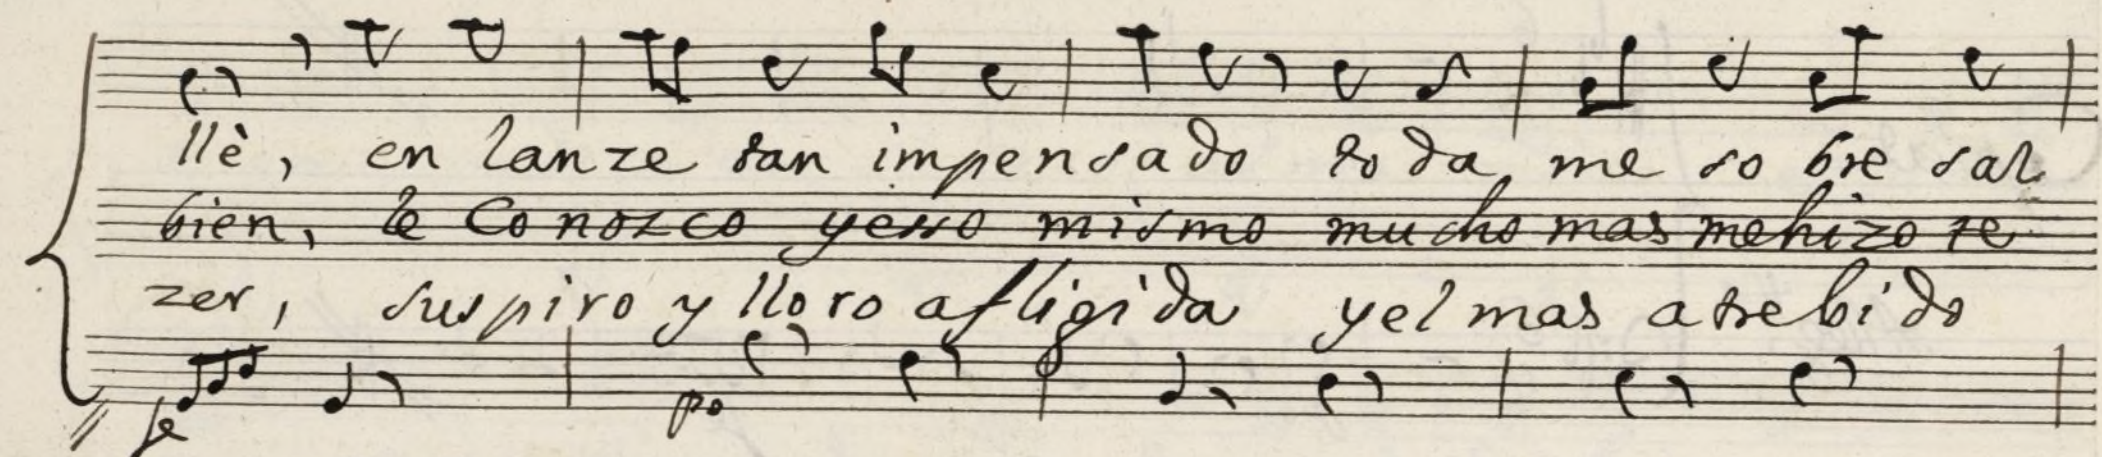 llè, en lanze tan impensado toda me so bre sal
bien, le Conozco yesso mismo mucho mas mehizo te
zer, suspiro y lloro afligida yel mas atrebido
fe po